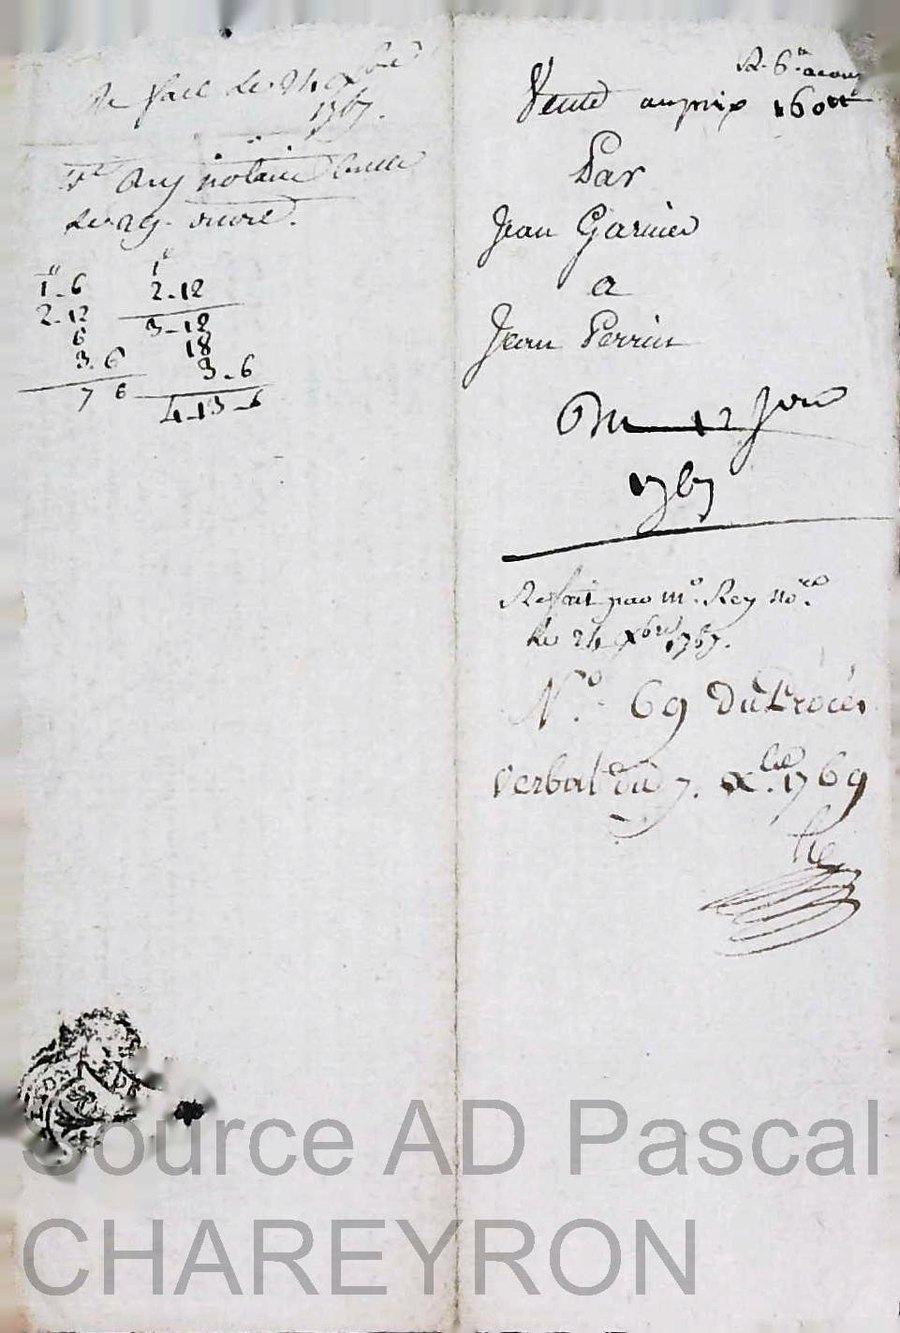 Refait le 24 Xbre
1767.
Me Rey notaire
le 29 ouvré.
1-6
2-12
6
3-6
7 6
1
2-12
3-18
18
3-6
4-13-6
R. 6s acour
Vente au prix 160tt
Par
Jean Garnier
a
Jean Perrin
Du 12 Janv
1767
Refait par me Rey nore
le 24 Xbre 1767.
No. 69 Du Procès
verbal du 7. Xbre 1769
Source AD Pascal
CHAREYRON